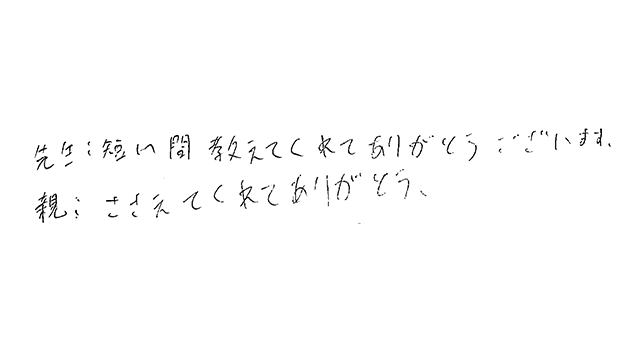 先生：短い間教えてくれてありがとうございます、
親：ささえてくれてありがとう、